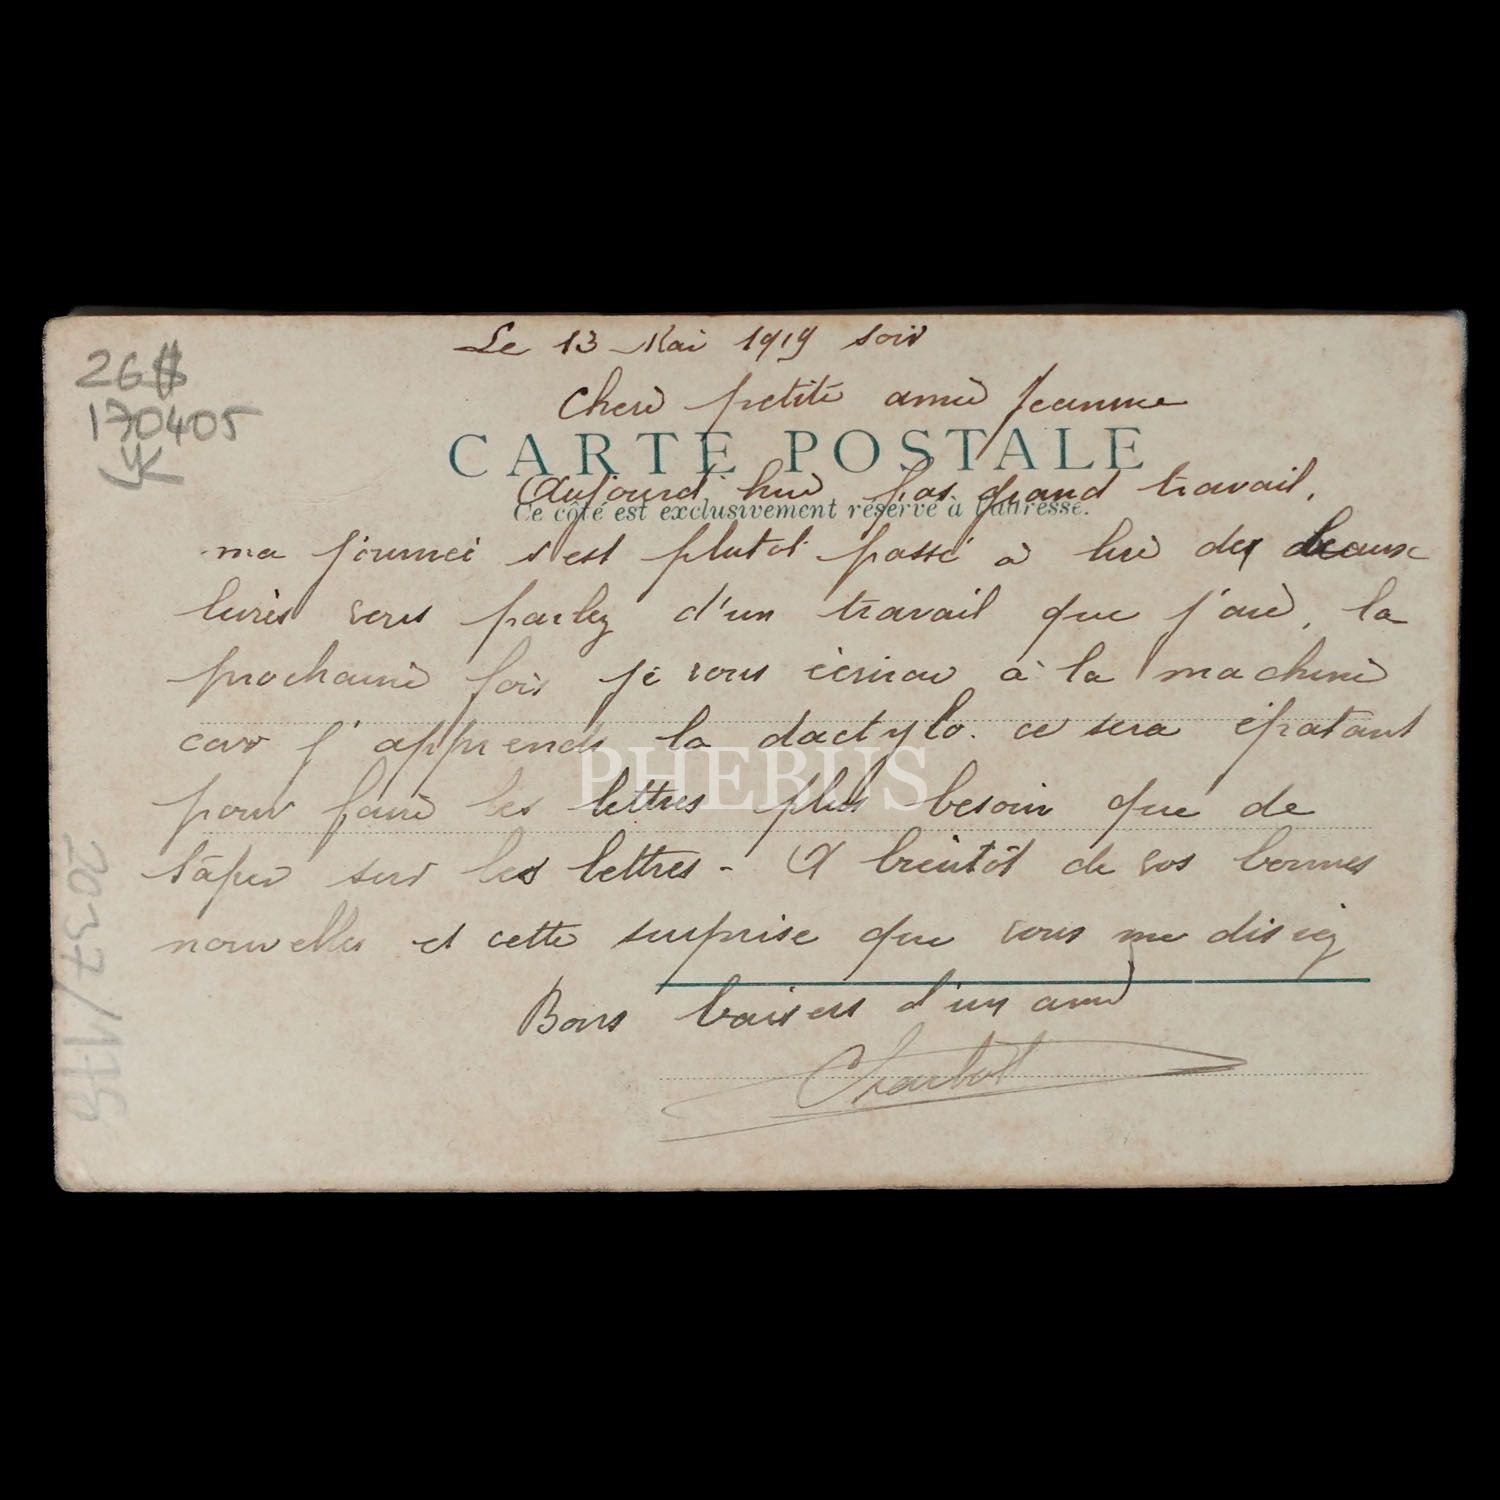 Le 13 Mai 1919 soir
26#
170405
Chere petite amie Jeanne
CARTE POSTALE
Aujourd'hui pas grand travail,
Ce côté est exclusivement réservé à l'adresse.
ma journée s'est plutot passé à lire des beaux
livres vous parlez d'un travail que j'ai, la
prochaine fois je vous écrirai à la machine
car j'apprends la dactylo. ce sera épatant
PHEBUS
pour faire les lettres plus besoin que de
taper sur les lettres - A bientôt de vos bonnes
nouvelles et cette surprise que vous me disiez
Bons baisers d'un ami
2037/179